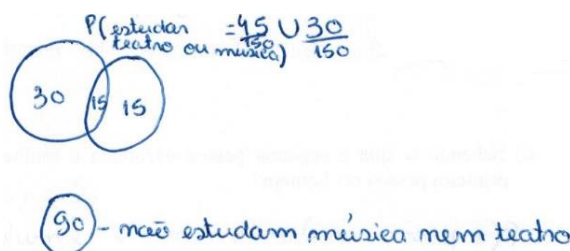 P(estudar teatro ou musica) = 45/150 U 30/150
30 15 15
90 - não estudam música nem teatro